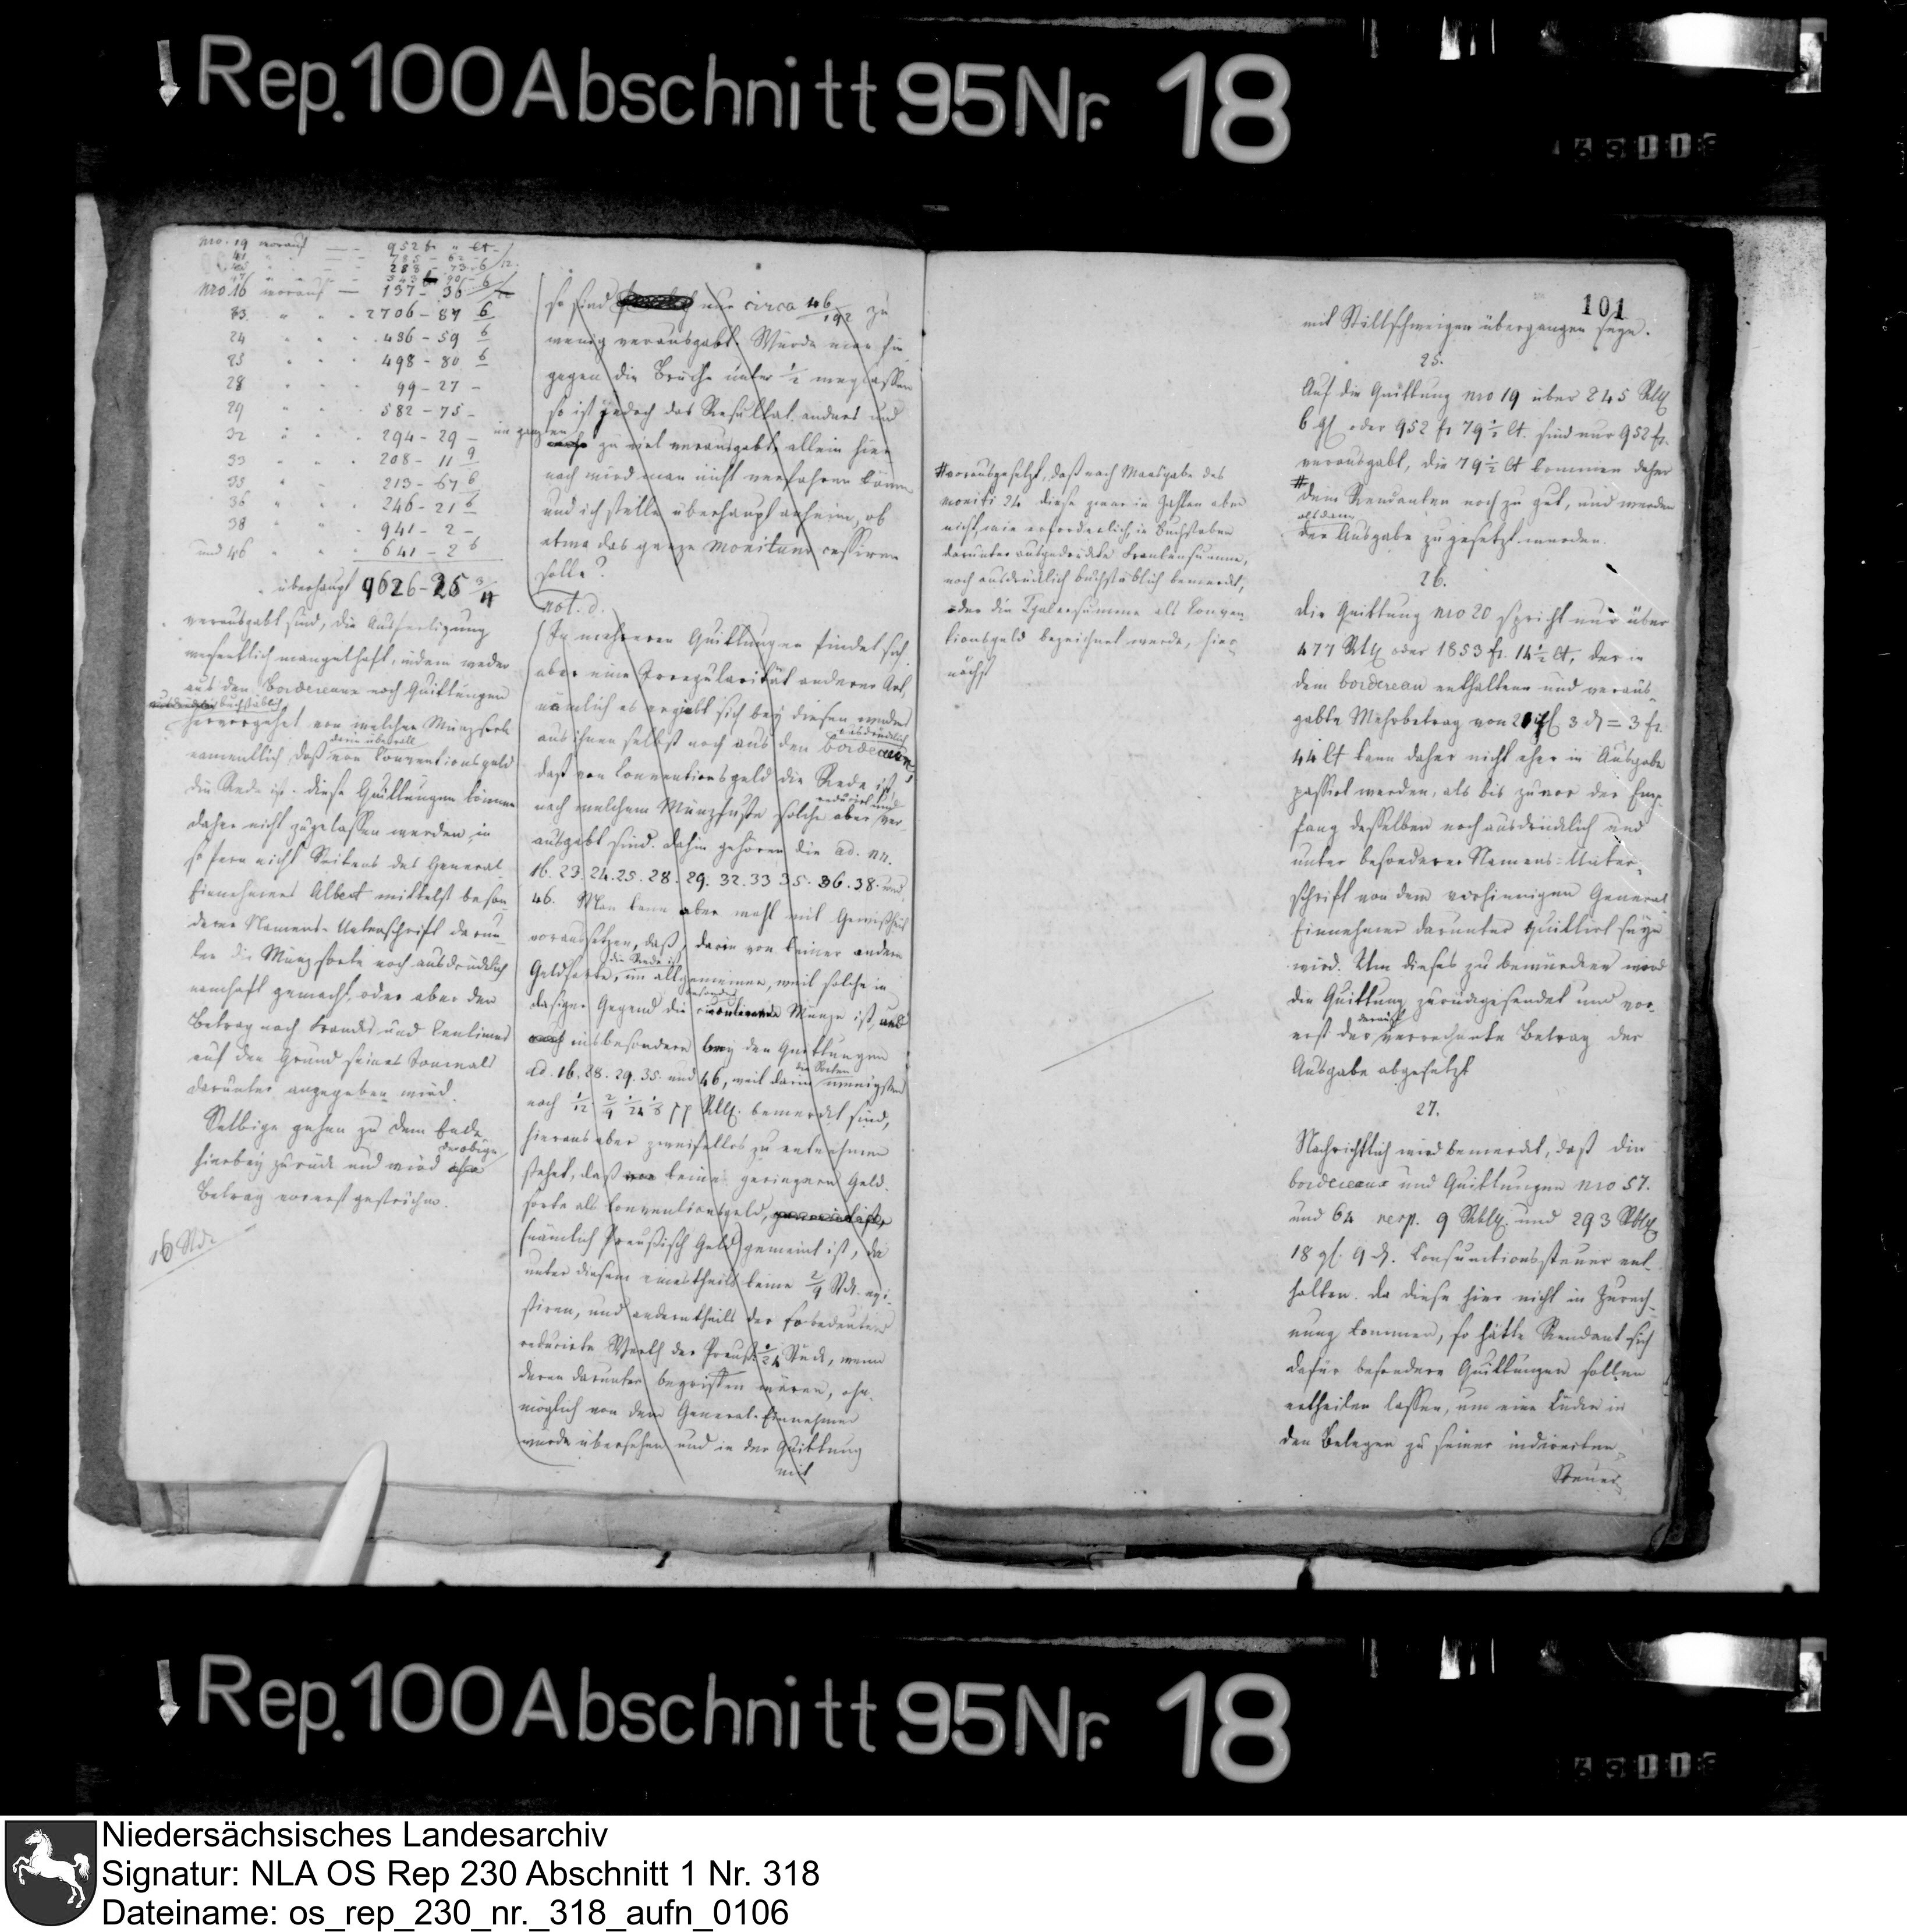 Rep. 100 Abschnitt 95 Nr. 18
nro. 19 worauf — — 952 fr. " Ct.
nro 16 worauf — 137 - 36
23 " " " 2706 - 87 6
24 " " " 486 - 59 6
25 " " " 498 - 80 6
28 " " " 99 - 27 -
29 " " " 582 - 75 -
32 " " " 294 - 29 -
33 " " " 208 - 11 9
35 " " 213 - 67 6
36 " " " 246 - 21 6
38 " " " 941 - 2 -
und 46 " " " 641 - 2 6
überhaupt 9626 - 25 3/4
verausgabt sind, die Ausfertigung
wesentlich mangelhaft, indem weder
aus den Bordereaux noch Quittungen
buchstäblich
hervorgehet von welcher Münzsorte
darin überall
namentlich daß von Conventionsgeld
die Rede ist. Diese Quittungen können
daher nicht zugelassen werden, in
so fern nicht Seitens des General
Einnehmers Albert mittelst beson-
derer Namens-Unterschrift darun-
ter die Münzsorte noch ausdrücklich
namhaft gemacht, oder aber der
Betrag nach Francs und Centimes
auf den Grund seines Journals
darunter angegeben wird.
Selbige gehen zu dem Ende
der obige
hierbey zurück und wird
Betrag vorerst gestrichen.
so sind nur circa 46/192 zu
wenig verausgabt. Würde man hin
gegen die Brüche unter 1/2 weglassen
so ist jedoch das Resultat anders und
im ganzen
zu viel verausgabt, allein hier
nach wird man nicht verfahren können
und ich stelle überhaupt anheim, ob
etwa das ganze Monitum cessiren
solle?
not. d.
In mehreren Quittungen findet sich
aber eine Irregularität anderer Art
nämlich es ergiebt sich bey diesen weder
ausdrücklich
aus ihnen selbst noch aus den bordereaux,
daß von Conventionsgeld die Rede ist,
reducirt und
nach welchem Münzfuße solche aber ver-
ausgabt sind. Dahin gehören die ad. nn.
16. 23. 24. 25. 28. 29. 32. 33 35. 36. 38. und
46. Man kann aber wohl mit Gewißheit
voraussetzen, daß darin von keiner andern
die Rede ist
Geldsorte, im allgemeinen, weil solche in
dasiger Gegend die Münze ist, und
insbesondere bey den Quittungen
die Sorten
ad. 16. 28. 29. 35. und 46, weil darin wenigstens
noch 1/12. 2/4 1/24 1/8 pp Rtlr. bemerkt sind,
hieraus aber zweifellos zu entnehmen
stehet, daß keine geringere Geld-
sorte als Conventionsgeld,
(nämlich Preußisch Geld) gemeint ist, da
unter diesem einestheils keine Stck. exi-
stiren, und anderntheils der so bedeutend
reducirte Werth der Preuß. 1/24 Stück, wenn
deren darunter begriffen wären, ohn-
möglich von dem General-Einnehmer
würde übersehen und in der Quittung
mit
#vorausgesetzt, daß nach Maasgabe des
moniti 24 diese zwar in Zahlen aber
nicht, wie erforderlich, in Buchstaben
darunter ausgedrückte Frankensumme,
noch ausdrücklich buchstäblich bemerkt,
oder die Thalersumme als Conven-
tionsgeld bezeichnet werde, hier-
nächst
101
mit Stillschweigen übergangen seyn.
25.
Auf die Quittung nro 19 über 245 Rtlr
6 gl oder 952 fr 79 1/2 Ct. sind nur 952 fr.
verausgabt, die 79 1/2 Ct kommen daher
# dem Rendanten noch zu gut, und werden
alsdann
der Ausgabe zugesetzt werden.
26.
Die Quittung nro 20 spricht nur über
477 Rtlr oder 1853 fr. 14 1/2 Ct, der in
dem bordereau enthaltene und veraus-
gabte Mehrbetrag von 21 gl 3 d = 3 fr.
44 Ct kann daher nicht eher in Ausgabe
passirt werden, als bis zuvor der Emp-
fang desselben noch ausdrücklich und
unter besonderer Namens-Unter-
schrift von dem vorhinnigen General
Einnehmer darunter quittirt seyn
wird. Um dieses zu bewürken wird
die Quittung zurückgesendet und vor-
darauf
erst der verrechnete Betrag der
Ausgabe abgesetzt
27.
Nachrichtlich wird bemerkt, daß die
bordereaux und Quittungen nro 57.
und 64 resp. 9 Rtlr. und 293 Rtlr
18 gl. 9 d. Consumtionssteuer ent-
halten. Da diese hier nicht in Zurech-
nung kommen, so hätte Rendant sich
dafür besondere Quittungen sollen
ertheilen lassen, um eine Lücke in
den Belegen zu seiner indirecten-
Steuer
Rep. 100 Abschnitt 95 Nr. 18
Niedersächsisches Landesarchiv
Signatur: NLA OS Rep 230 Abschnitt 1 Nr. 318
Dateiname: os_rep_230_nr._318_aufn_0106